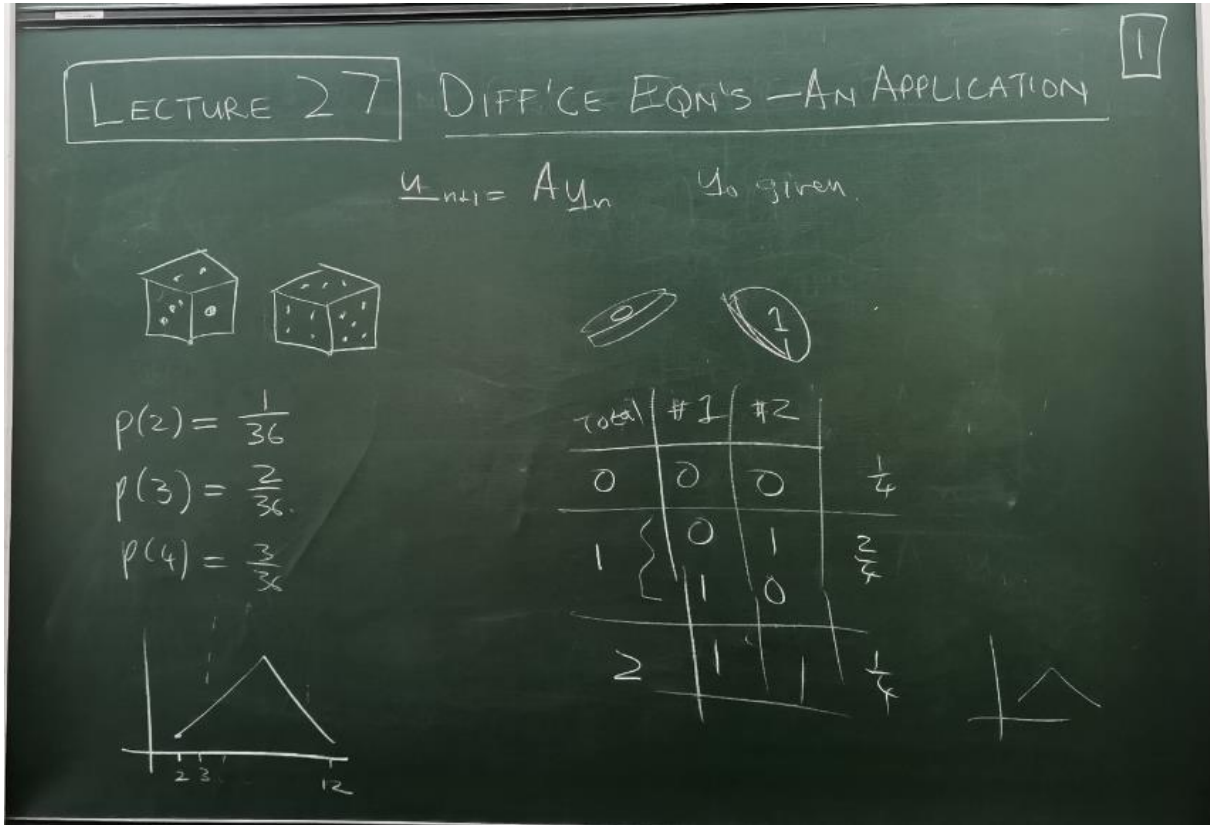 1
LECTURE 27 DIFF'CE EQN'S - AN APPLICATION
u_{n+1} = A u_n u_0 given.
0 1
p(2) = 1/36
p(3) = 2/36.
p(4) = 3/36
2 3 12
Total #1 #2
0 0 0 1/4
1 { 0 1 2/4
1 0
2 1 1 1/4